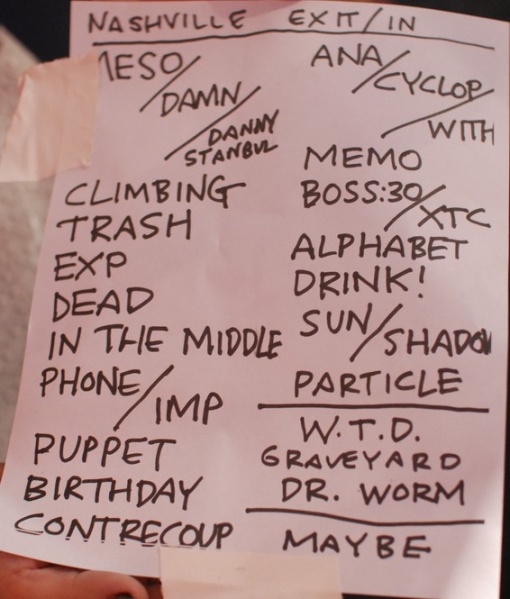 NASHVILLE EXIT/IN
MESO/
DAMN/
DANNY
STANBUL
CLIMBING
TRASH
EXP
DEAD
IN THE MIDDLE
PHONE/
IMP
PUPPET
BIRTHDAY
CONTRECOUP
ANA/
CYCLOP/
WITH
MEMO
BOSS:30/
XTC
ALPHABET
DRINK!
SUN/
SHADOW
PARTICLE
W.T.D.
GRAVEYARD
DR. WORM
MAYBE